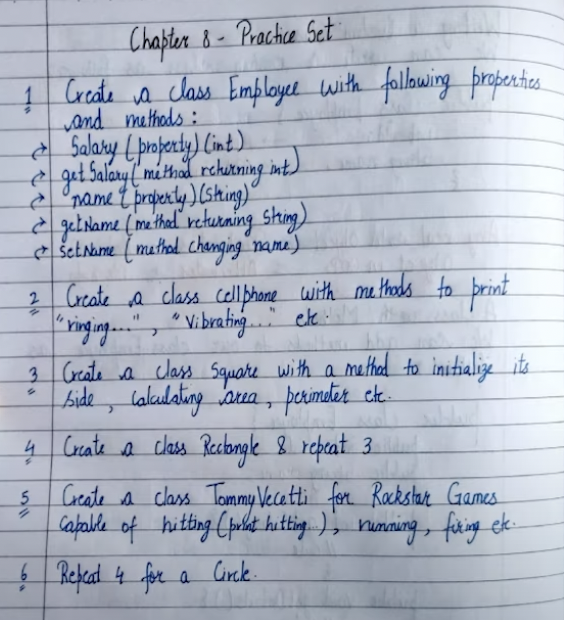 Chapter 8 - Practice Set
1 Create a class Employee with following properties
and methods :
Salary (property) (int)
getSalary (method returning int)
name (property) (String)
getName (method returning String)
setName (method changing name)
2 Create a class cellphone with methods to print
"ringing...", "Vibrating..." etc.
3 Create a class Square with a method to initialize its
side, calculating area, perimeter etc.
4 Create a class Rectangle & repeat 3
5 Create a class TommyVecetti for Rockstar Games
Capable of hitting (print hitting...), running, firing etc.
6 Repeat 4 for a Circle.